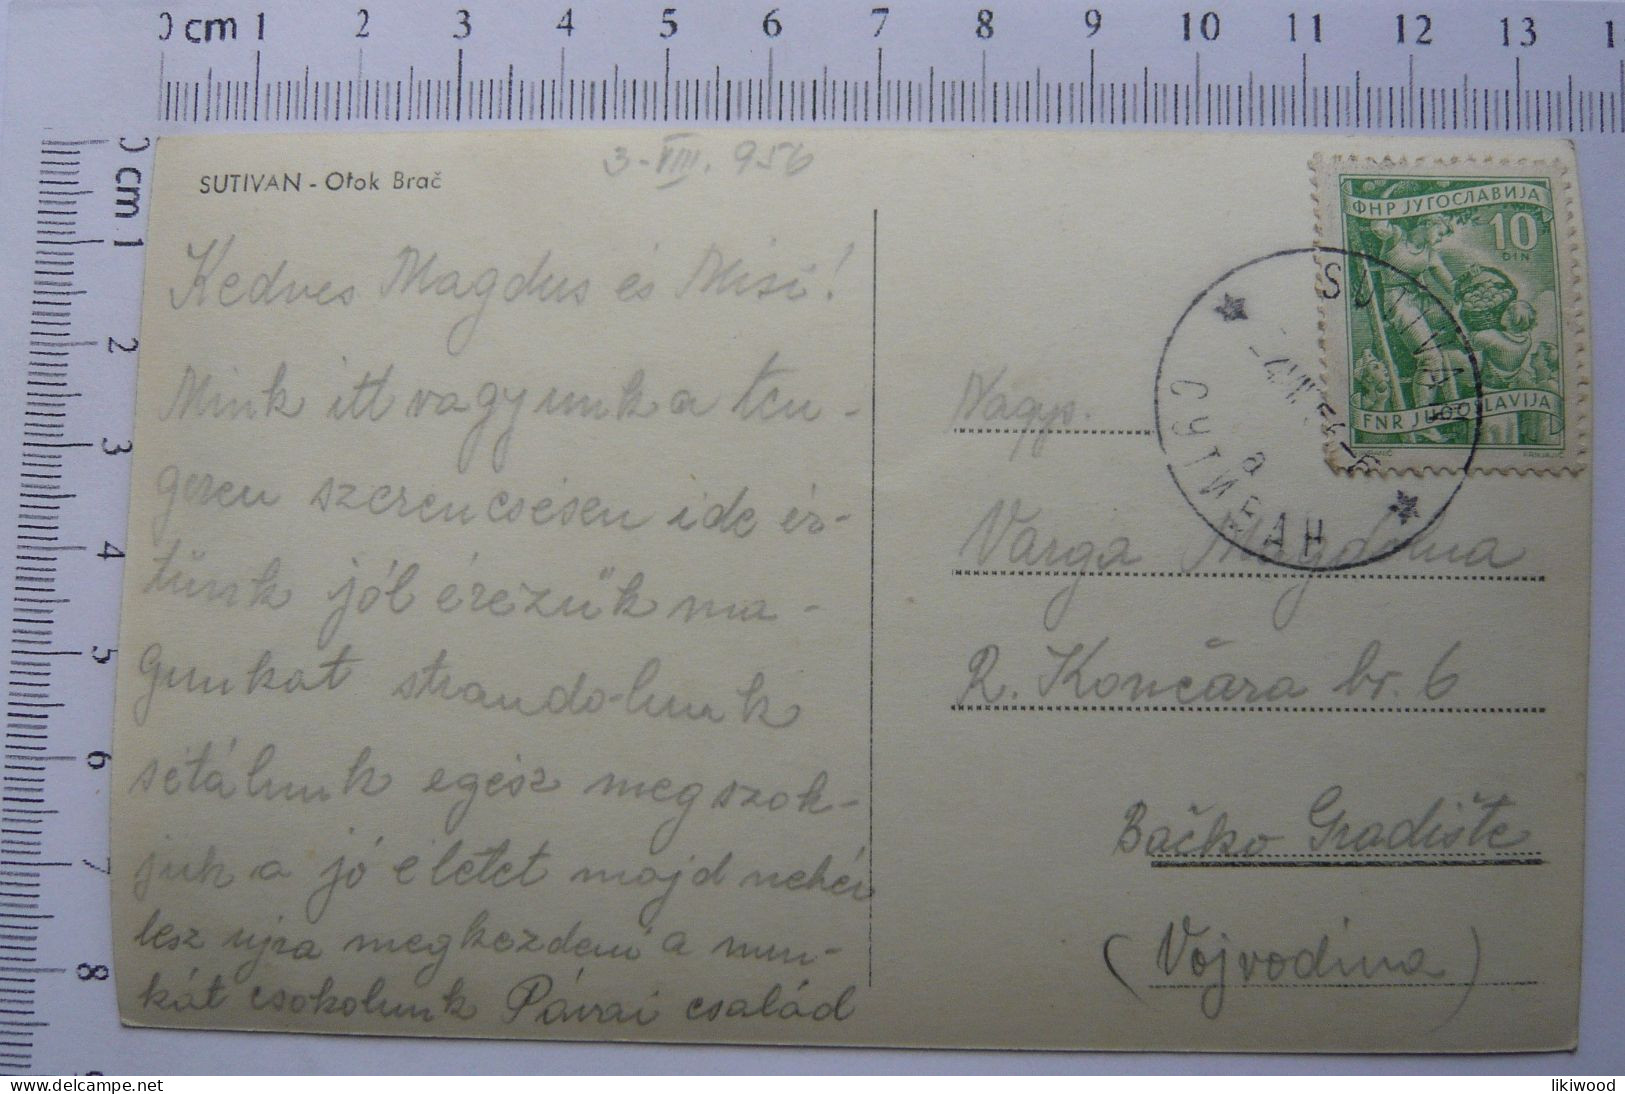 0 cm 1 2 3 4 5 6 7 8 9 10 11 12 13 1
0 cm 1 2 3 4 5 6 7 8
SUTIVAN - Otok Brač
3-VIII. 956
Kedves Magdus és Misi!
Mink itt vagyunk a ten-
geren szerencsésen ide ér-
tünk jól érezük ma-
gunkat strandolunk
sétálunk egész megszok-
juk a jó életet majd nehéz
lesz ujra megkezdeni a mun-
kát csokolunk Pávai család
ФНР ЈУГОСЛАВИЈА
10
DIN
FNR JUGOSLAVIJA
SUTIVAN
a
СУТИВАН
Nagys.
Varga Magdolna
R. Končara br. 6
Bačko Gradište
(Vojvodina)
likiwood